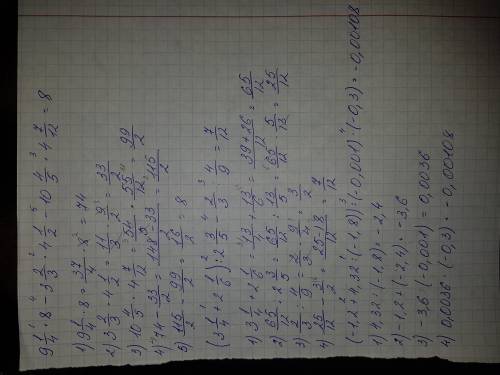 9 1/4 · 8 - 3 2/3 · 4 1/2 - 10 4/5 · 4 7/12 = 8
1) 9 1/4 · 8 = 37/4 · 8 = 74
2) 3 2/3 · 4 1/2 = 11/3 · 9/2 = 33/2
3) 10 4/5 · 4 7/12 = 54/5 · 55/12 = 99/2
4) 74 - 33/2 = (148-33)/2 = 115/2
5) 115/2 - 99/2 = 16/2 = 8
(3 1/4 + 2 1/6) : 2 3/5 - 2/3 : 4/9 = 7/12
1) 3 1/4 + 2 1/6 = 13/4 + 13/6 = (39+26)/12 = 65/12
2) 65/12 : 2 3/5 = 65/12 : 13/5 = 65/12 · 5/13 = 25/12
3) 2/3 : 4/9 = 2/3 · 9/4 = 3/2
4) 25/12 - 3/2 = (25-18)/12 = 7/12
(-1,2 + 4,32 : (-1,8)) · (-0,001) · (-0,3) = -0,00108
1) 4,32 : (-1,8) = -2,4
2) -1,2 + (-2,4) = -3,6
3) -3,6 · (-0,001) = 0,0036
4) 0,0036 · (-0,3) = -0,00108